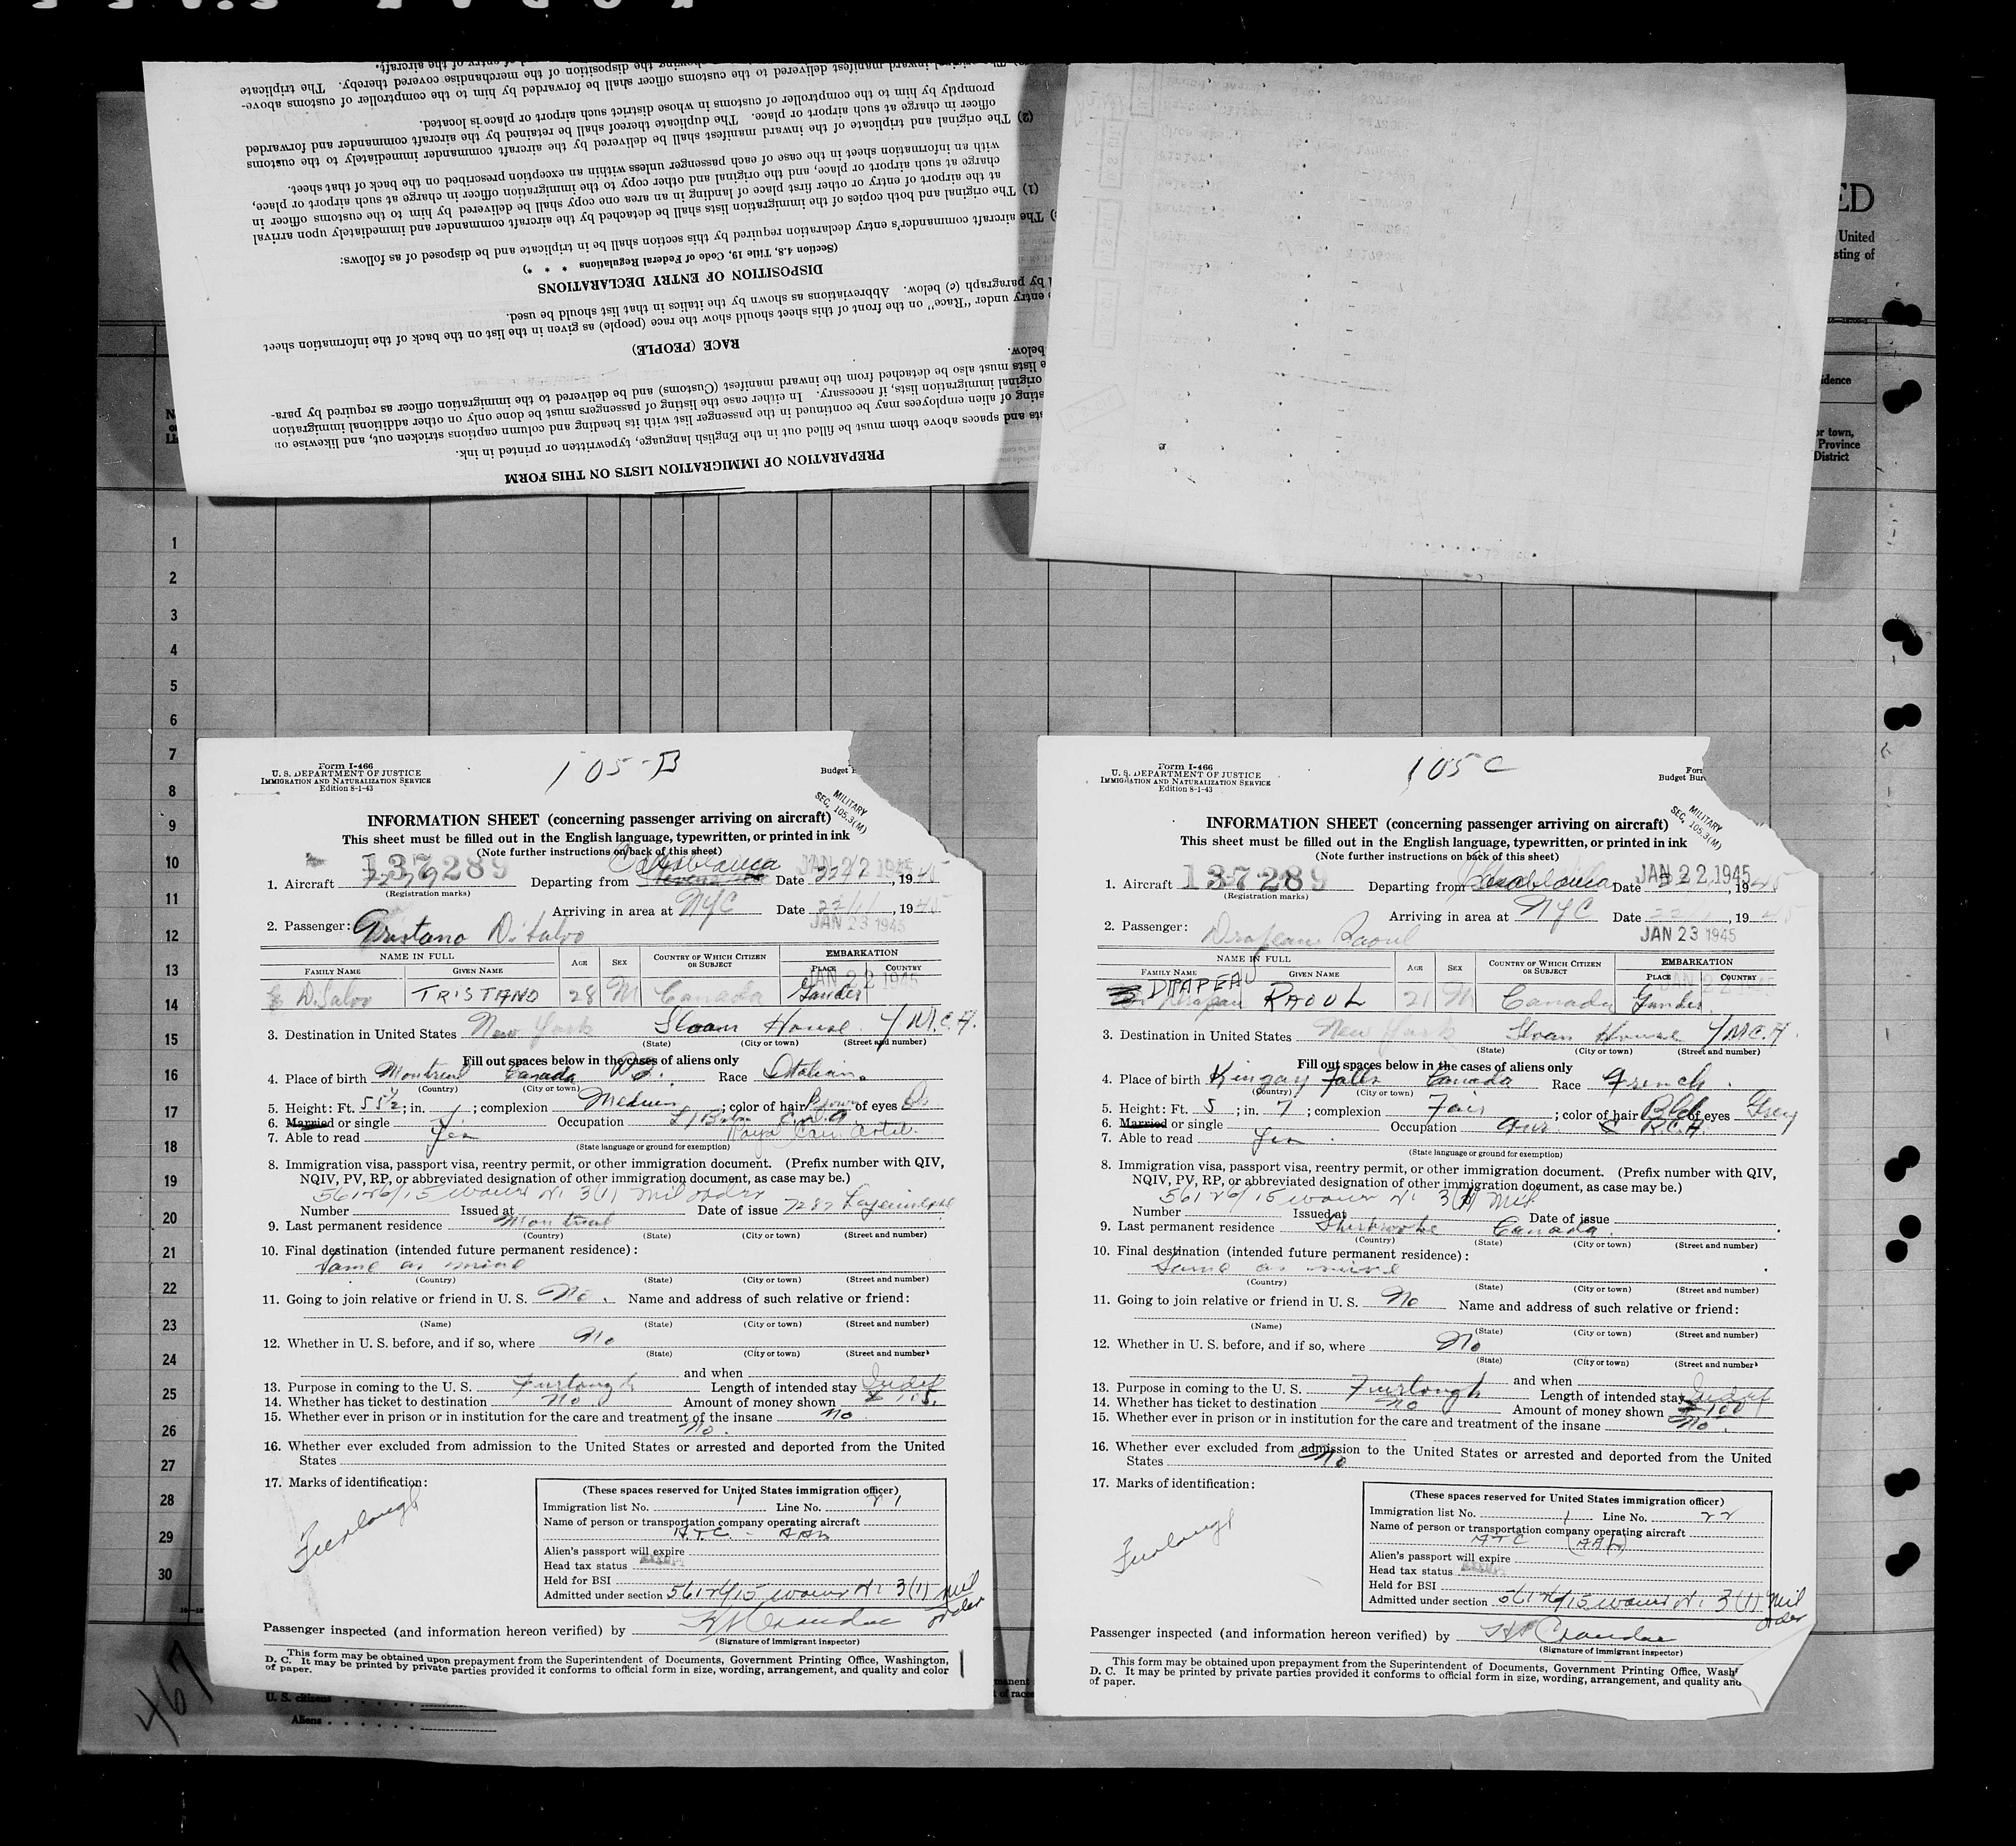 PREPARATION OF IMMIGRATION LISTS ON THIS FORM
and spaces above them must be filled out in the English language, typewritten or printed in ink.
of alien employees may be continued in the passenger list with its heading and column captions stricken out, and likewise on
original immigration lists, if necessary. In either case the listing of passengers must be done only on other additional immigration
lists must also be detached from the inward manifest (Customs) and be delivered to the immigration officer as required by para-
below.
RACE (PEOPLE)
entry under "Race" on the front of this sheet should show the race (people) as given in the list on the back of the information sheet
by paragraph (c) below. Abbreviations as shown by the italics in that list should be used.
DISPOSITION OF ENTRY DECLARATIONS
(Section 4.8, Title 19, Code of Federal Regulations * * *)
The aircraft commander's entry declaration required by this section shall be in triplicate and be disposed of as follows:
(1) The original and both copies of the immigration lists shall be detached by the aircraft commander and immediately upon arrival
at the airport of entry or other first place of landing in an area one copy shall be delivered by him to the customs officer in
charge at such airport or place, and the original and other copy to the immigration officer in charge at such airport or place,
with an information sheet in the case of each passenger unless within an exception prescribed on the back of that sheet.
(2) The original and triplicate of the inward manifest shall be delivered by the aircraft commander immediately to the customs
officer in charge at such airport or place. The duplicate thereof shall be retained by the aircraft commander and forwarded
promptly by him to the comptroller of customs in whose district such airport or place is located.
inward manifest delivered to the customs officer shall be forwarded by him to the comptroller of customs above-
the disposition of the merchandise covered thereby. The triplicate
of entry of the aircraft.
ED
United
sting of
idence
or town,
Province
District
1
2
3
4
5
6
7
8
9
10
11
12
13
14
15
16
17
18
19
20
21
22
23
24
25
26
27
28
29
30
467
U. S. citizens
Aliens
Form I-466
U. S. DEPARTMENT OF JUSTICE
IMMIGRATION AND NATURALIZATION SERVICE
Edition 8-1-43
105-B
Budget
MILITARY
SEC. 105.3(M)
INFORMATION SHEET (concerning passenger arriving on aircraft)
This sheet must be filled out in the English language, typewritten, or printed in ink
(Note further instructions on back of this sheet)
1. Aircraft 137289 Departing from Casablanca Date JAN 22 1945, 1945
(Registration marks)
Arriving in area at NYC Date 22/1/, 1945
JAN 23 1945
2. Passenger: Tristano DiSalvo
NAME IN FULL AGE SEX COUNTRY OF WHICH CITIZEN OR SUBJECT EMBARKATION
FAMILY NAME GIVEN NAME PLACE COUNTRY
JAN 22 1945
DiSalvo TRISTANO 28 M Canada Gander
3. Destination in United States New York Sloan House Y.M.C.A.
(State) (City or town) (Street and number)
Fill out spaces below in the cases of aliens only
4. Place of birth Montreal Canada Race Italian
(Country) (City or town)
5. Height: Ft. 5 5½; in. ; complexion Medium; color of hair Brown of eyes
6. Married or single Occupation
7. Able to read Yes
(State language or ground for exemption)
8. Immigration visa, passport visa, reentry permit, or other immigration document. (Prefix number with QIV,
NQIV, PV, RP, or abbreviated designation of other immigration document, as case may be.)
3(1) Mil order
Number Issued at Date of issue
9. Last permanent residence Montreal
(Country) (State) (City or town) (Street and number)
10. Final destination (intended future permanent residence):
Same as
(Country) (State) (City or town) (Street and number)
11. Going to join relative or friend in U. S. No. Name and address of such relative or friend:
(Name) (State) (City or town) (Street and number)
12. Whether in U. S. before, and if so, where No
(State) (City or town) (Street and number)
and when
13. Purpose in coming to the U. S. Furlough Length of intended stay Indef
14. Whether has ticket to destination No Amount of money shown
15. Whether ever in prison or in institution for the care and treatment of the insane No
No.
16. Whether ever excluded from admission to the United States or arrested and deported from the United
States
17. Marks of identification:
Furlough
(These spaces reserved for United States immigration officer)
Immigration list No. 1 Line No. 21
Name of person or transportation company operating aircraft
A.T.C. - AAL
Alien's passport will expire
Head tax status
Held for BSI
Admitted under section 3(1) Mil order
Passenger inspected (and information hereon verified) by
(Signature of immigrant inspector)
This form may be obtained upon prepayment from the Superintendent of Documents, Government Printing Office, Washington,
D. C. It may be printed by private parties provided it conforms to official form in size, wording, arrangement, and quality and color
of paper.
Form I-466
U. S. DEPARTMENT OF JUSTICE
IMMIGRATION AND NATURALIZATION SERVICE
Edition 8-1-43
105 C
Budget Bur
MILITARY
SEC. 105.3(M)
INFORMATION SHEET (concerning passenger arriving on aircraft)
This sheet must be filled out in the English language, typewritten, or printed in ink
(Note further instructions on back of this sheet)
1. Aircraft 137289 Departing from Casablanca Date JAN 22 1945, 1945
(Registration marks)
Arriving in area at NYC Date 22/1, 1945
JAN 23 1945
2. Passenger: Drapeau Raoul
NAME IN FULL AGE SEX COUNTRY OF WHICH CITIZEN OR SUBJECT EMBARKATION
FAMILY NAME GIVEN NAME PLACE COUNTRY
DRAPEAU RAOUL 21 M Canada Gander
3. Destination in United States New York Sloan House YMCA
(State) (City or town) (Street and number)
Fill out spaces below in the cases of aliens only
4. Place of birth Kingsy Falls Canada Race French.
(Country) (City or town)
5. Height: Ft. 5; in. 7; complexion Fair; color of hair Bld of eyes Grey
6. Married or single Occupation Gnr R.C.A.
7. Able to read Yes
(State language or ground for exemption)
8. Immigration visa, passport visa, reentry permit, or other immigration document. (Prefix number with QIV,
NQIV, PV, RP, or abbreviated designation of other immigration document, as case may be.)
Mil
Number Issued at Date of issue
9. Last permanent residence Sherbrooke Canada.
(Country) (State) (City or town) (Street and number)
10. Final destination (intended future permanent residence):
Same as
(Country) (State) (City or town) (Street and number)
11. Going to join relative or friend in U. S. No Name and address of such relative or friend:
(Name) (State) (City or town) (Street and number)
12. Whether in U. S. before, and if so, where No
(State) (City or town) (Street and number)
and when
13. Purpose in coming to the U. S. Furlough Length of intended stay Indef
14. Whether has ticket to destination No Amount of money shown 100
15. Whether ever in prison or in institution for the care and treatment of the insane No.
16. Whether ever excluded from admission to the United States or arrested and deported from the United
States No
17. Marks of identification:
Furlough
(These spaces reserved for United States immigration officer)
Immigration list No. 1 Line No. 22
Name of person or transportation company operating aircraft
ATC (AAL)
Alien's passport will expire
Head tax status
Held for BSI
Admitted under section 3(1) Mil order
Passenger inspected (and information hereon verified) by
(Signature of immigrant inspector)
This form may be obtained upon prepayment from the Superintendent of Documents, Government Printing Office, Wash
D. C. It may be printed by private parties provided it conforms to official form in size, wording, arrangement, and quality and
of paper.